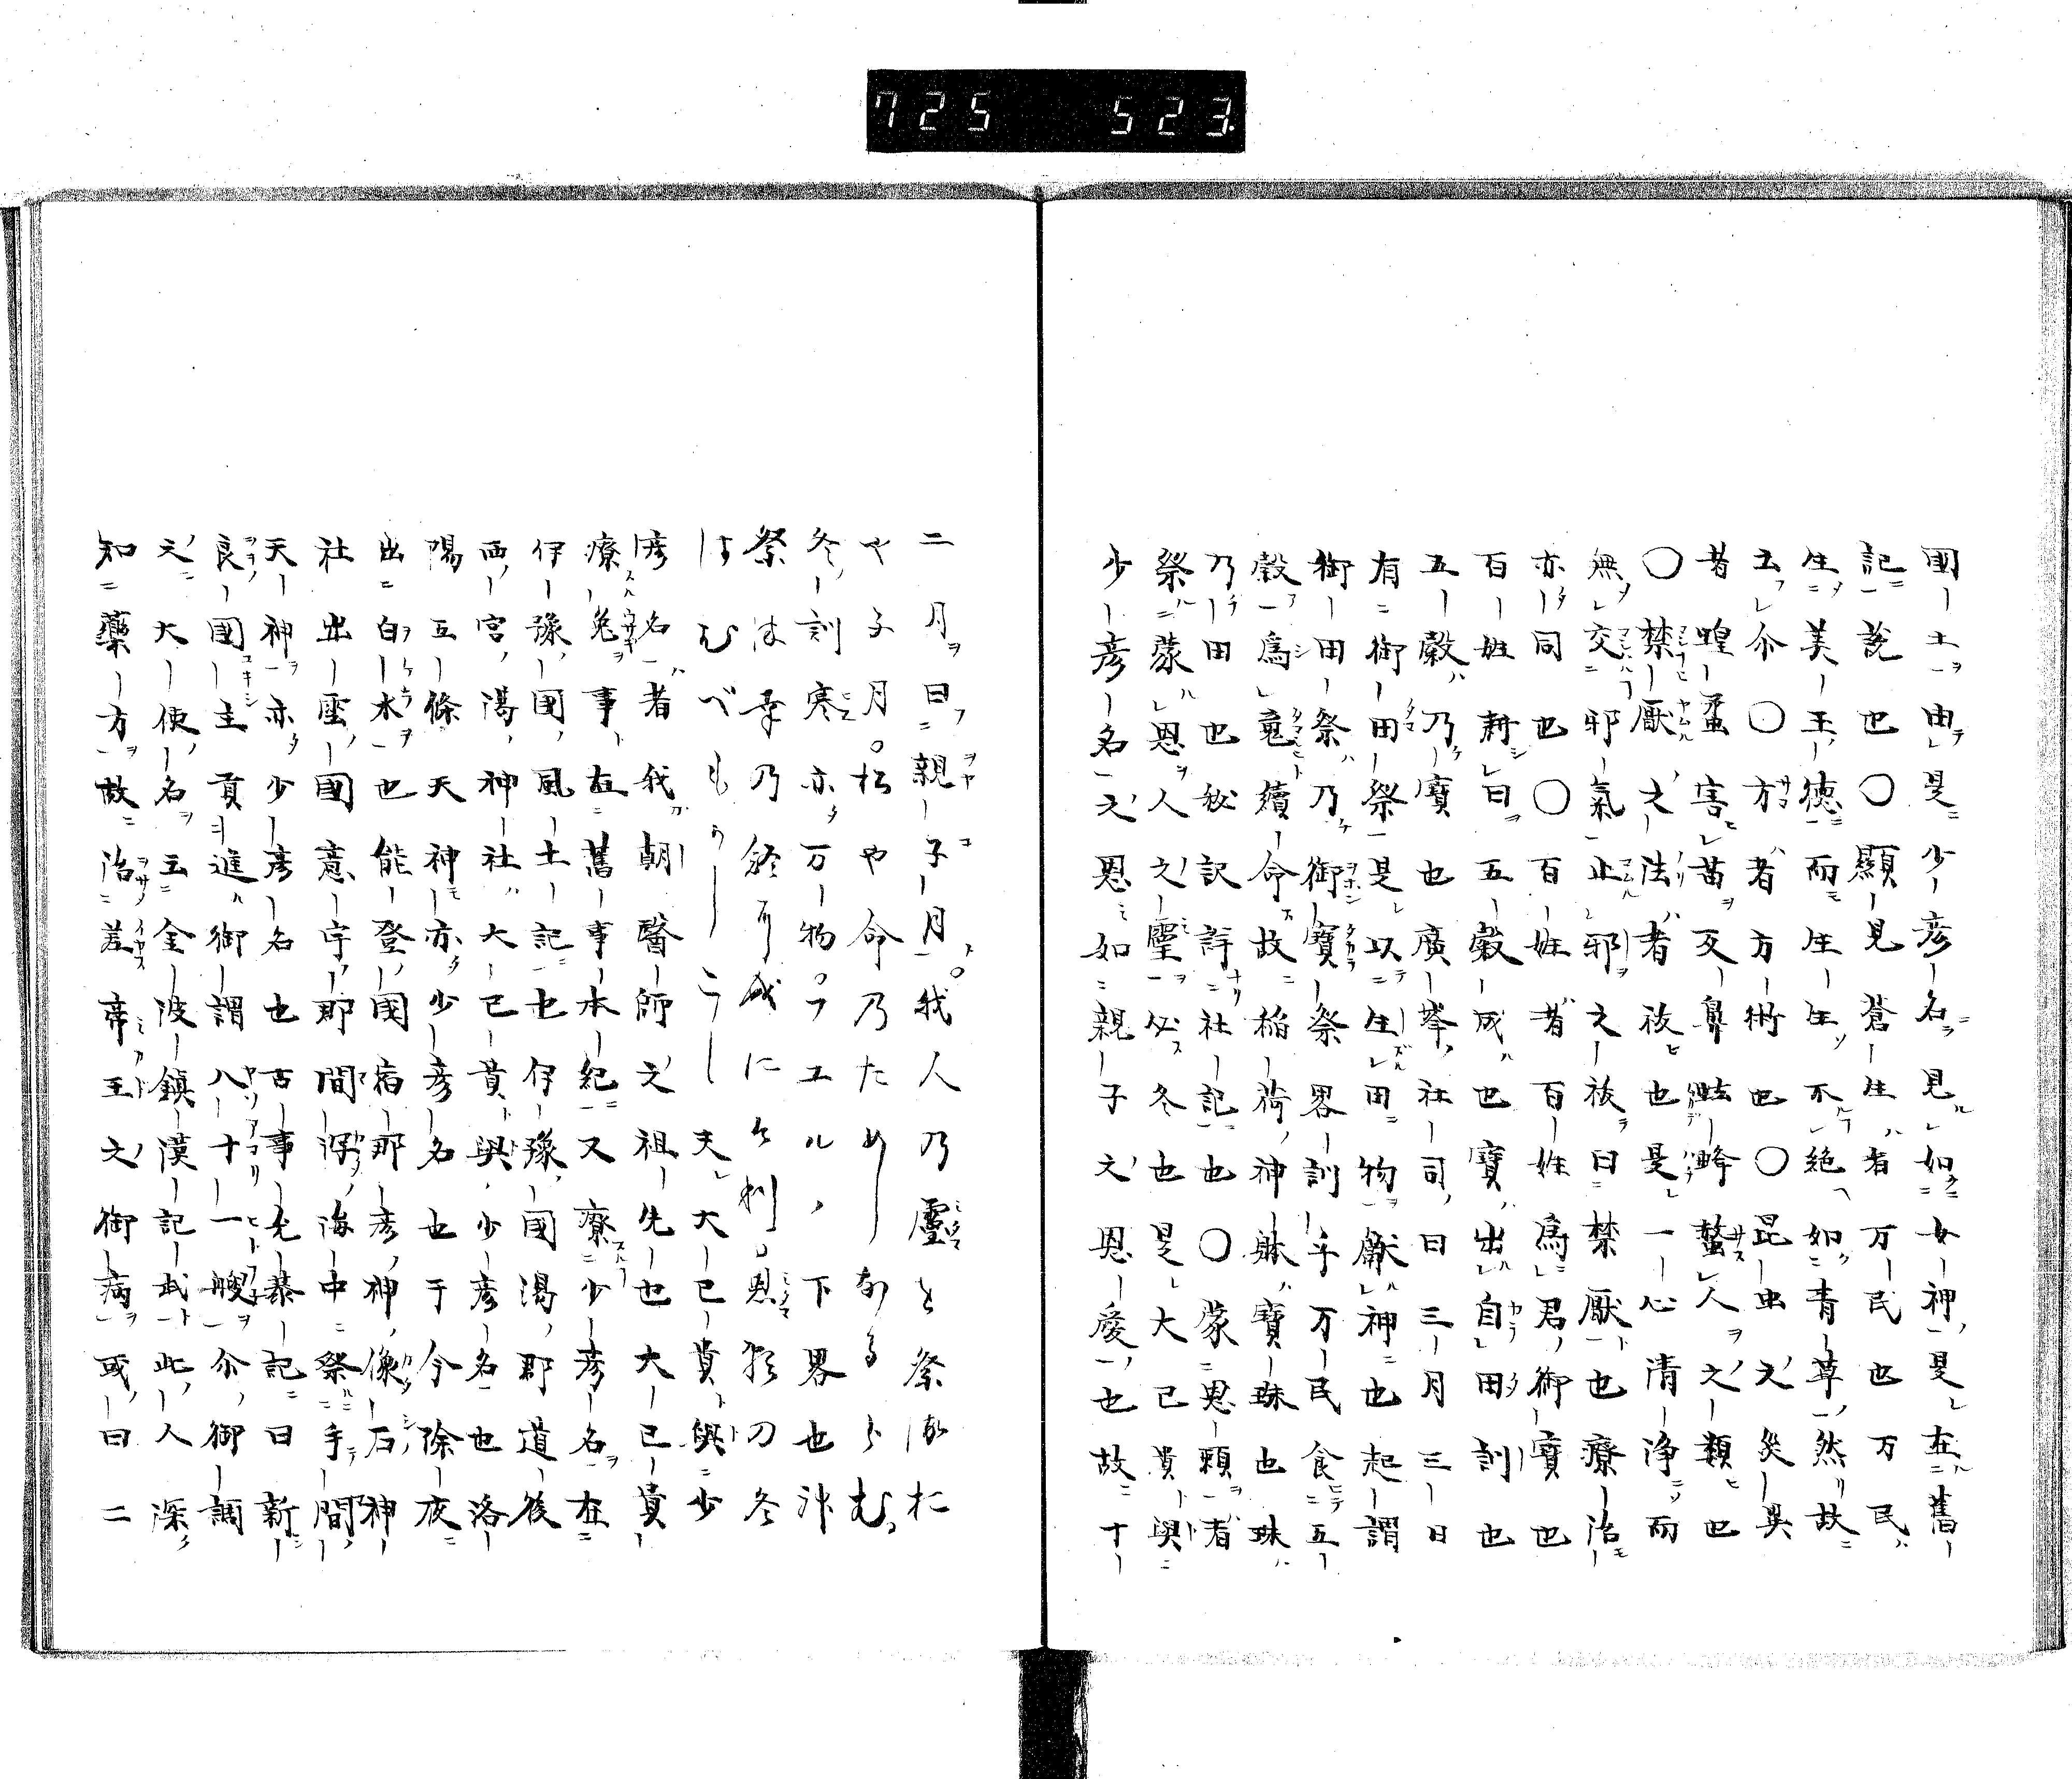 725 523.
國土由是少彦名見如女神是在舊
記說也〇顯見蒼生者万民也万民
生美玉德而生生不絶如青草然故
云尒〇方者方術也〇昆虫之災異
者蝗蝱害苗叉鼻蚑蜂螫人之類也
〇禁厭之法者祓也是一心清淨而
無交邪氣止邪之祓曰禁厭也療治
亦同也〇百姓者百姓爲君御寶也
百姓耕曰五穀成也寶出自田訓也
五穀乃寶也廣峯社司曰三月三日
有御田祭是以生田物獻神也起謂
御田祭乃御寶祭畧訓乎万民食五
穀爲竟續命故稲荷神躰寶珠也珠
乃田也秘訳詳社記也〇蒙恩頼者
祭蒙恩人之靈必冬也是大已貴與
少彦名之恩如親子之恩愛也故十
二月曰親子月我人乃靈と祭
や子月。松や命乃ためしなるらむ
冬訓寒亦万物フユル下界也
祭は年乃終
はむべもかしこし夫大已貴與少
彦名者我朝醫師之祖先也大已貴
療兔事在舊事本紀又療少彦名在
伊豫國風土記也伊豫國湯郡道後
西宮湯神社大已貴與少彦名也洛
陽五條天神亦少彦名也于今除夜
出白朮也能登國宿那彦神像石神
社出座國意宇郡間浮海中祭手間
天神亦少彦名也古事允恭記曰新
良國主貢進御調八十一艘尒御調
之大使名云金波鎮漢記武此人深
知藥方故治差帝王之御病或曰二